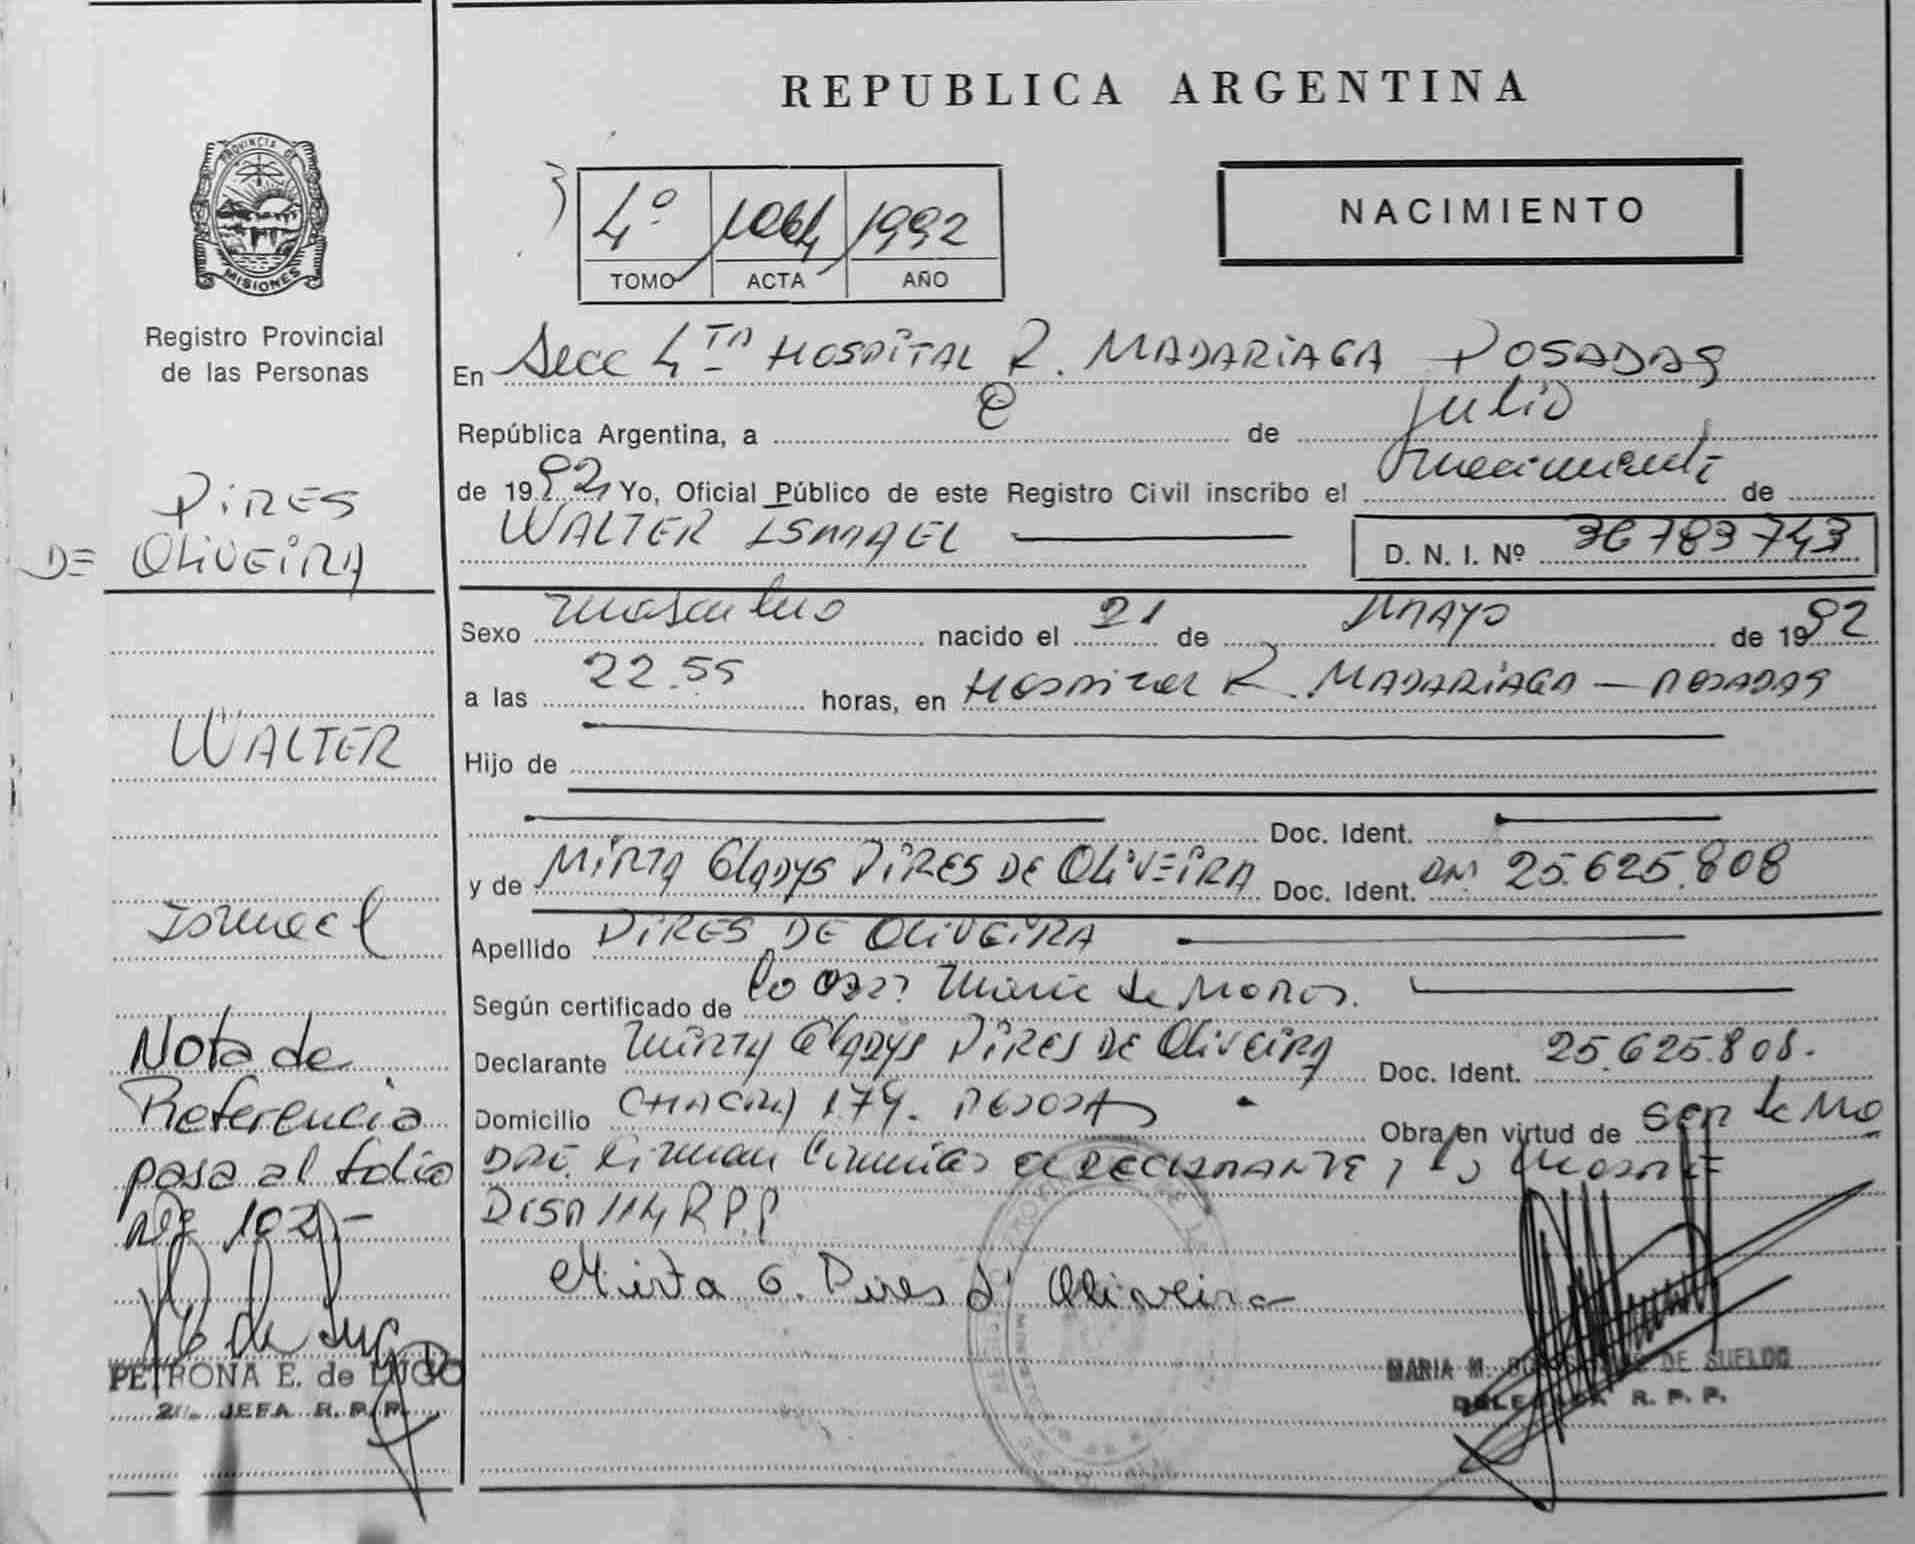 REPUBLICA ARGENTINA
PROVINCIA DE
MISIONES
Registro Provincial
de las Personas
4º 1064 1992
TOMO ACTA AÑO
NACIMIENTO
En Secc 4TA HOSPITAL R. MADARIAGA POSADAS
República Argentina, a 8 de Julio
de 1992 Yo, Oficial Público de este Registro Civil inscribo el nacimiento de
WALTER ISMAEL D. N. I. Nº 36783743
PIRES
DE OLIVEIRA
Sexo masculino nacido el 21 de MAYO de 1992
a las 22.55 horas, en HOSPITAL R. MADARIAGA — POSADAS
WALTER
Hijo de
Doc. Ident.
y de MIRTA GLADYS PIRES DE OLIVEIRA Doc. Ident. DNI 25.625.808
Ismael
Apellido PIRES DE OLIVEIRA
Según certificado de María de
Declarante MIRTA GLADYS PIRES DE OLIVEIRA Doc. Ident. 25.625.808.
Domicilio CHACRA 179. POSADAS Obra en virtud de ser la
firman el DECLARANTE,
DISP 114 R.P.P
Nota de
Referencia
pasa al folio
Nº 102 -
Mirta G. Pires d' Oliveira
PETRONA E. de LUGO
JEFA R. P. P.
MARIA M. DE SUELDO
DELEGADA R. P. P.